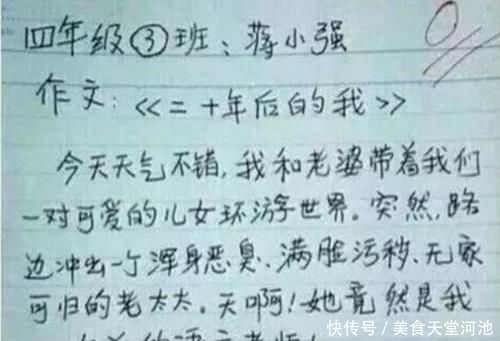 四年级③班：蒋小强
作文：<<二十年后的我>>
今天天气不错,我和老婆带着我们
一对可爱的儿女环游世界。突然,路
边冲出一个浑身恶臭、满脸污秽、无家
可归的老太太。天啊!她竟然是我
快传号／美食天堂河池